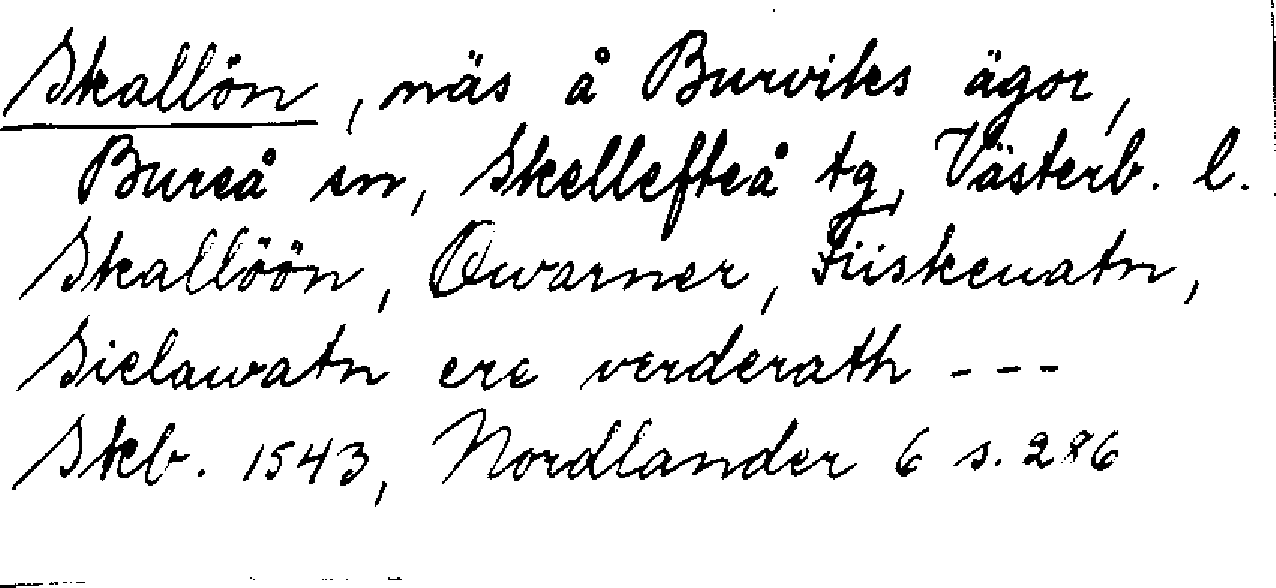 Skallön, näs å Burviks ägor,
Bureå sn, Skellefteå tg, Västerb. l.
Skallöön, Owarner, Fiiskeuatn,
Sielawatn ere verderath ---
Skb. 1543, Nordlander 6 s. 286